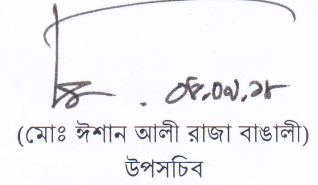 ০৫.০৭.১৮
(মোঃ ঈশান আলী রাজা বাঙালী)
উপসচিব